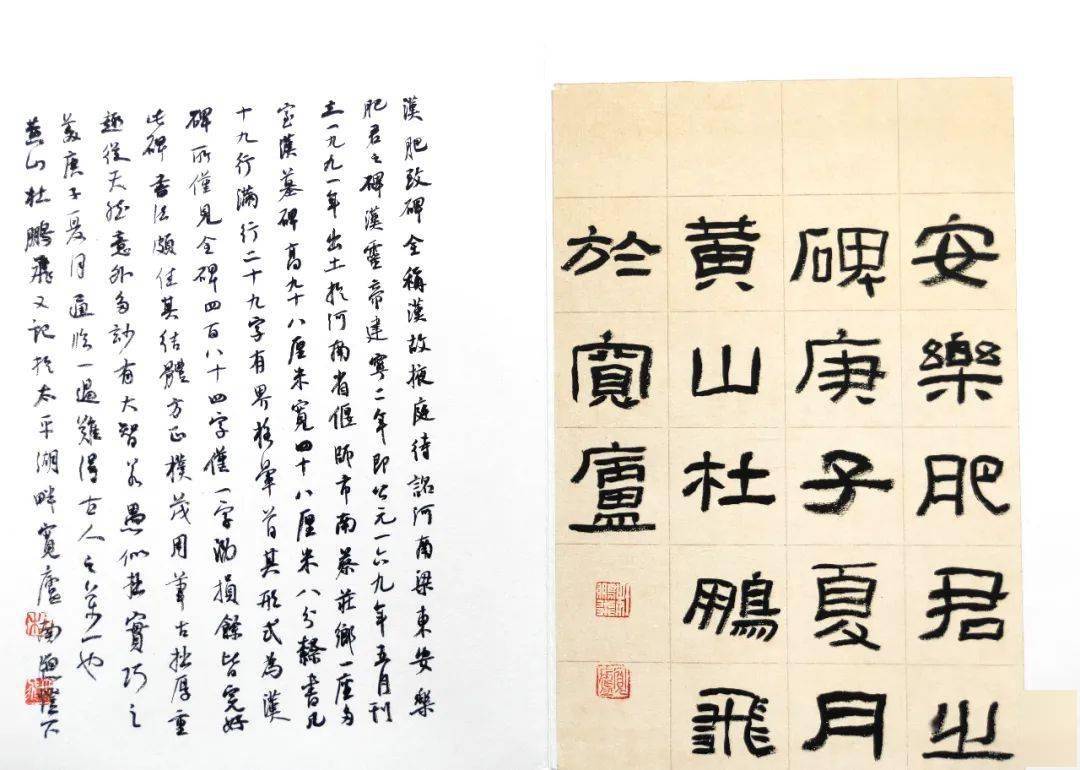 安樂肥君之
碑庚子夏月
黄山杜鵬飛
於寬廬
漢肥致碑全稱漢故掖庭待詔河南梁東安樂
肥君之碑漢靈帝建寧二年即公元一六九年五月刊
立一九九一年出土於河南省偃師市南蔡莊鄉一座多
室漢墓碑高九十八厘米寬四十八厘米八分隸書凡
十九行滿行二十九字有界格暈首其形式為漢
碑所僅見全碑四百八十四字僅一字泐損餘皆完好
此碑書法頗佳其結體方正樸茂用筆古拙厚重
趣從天然意外多妙有大智若愚似拙實巧之
美庚子夏月通臨一過難得古人之萬一也
山杜鵬飛又記於太平湖畔寬廬南窗燈下